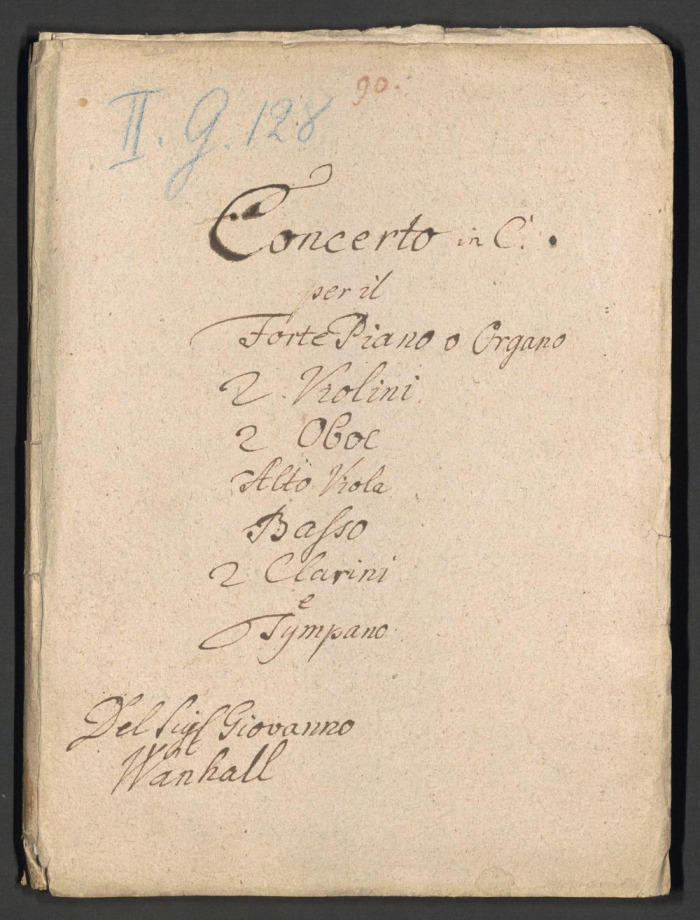 II. G. 128
90.
Concerto in C.
per il
Forte Piano o Organo
2 Violini
2 Oboe
Alto Viola
Basso
2 Clarini
e
Tympano
Del Sigl Giovanno
Wanhall